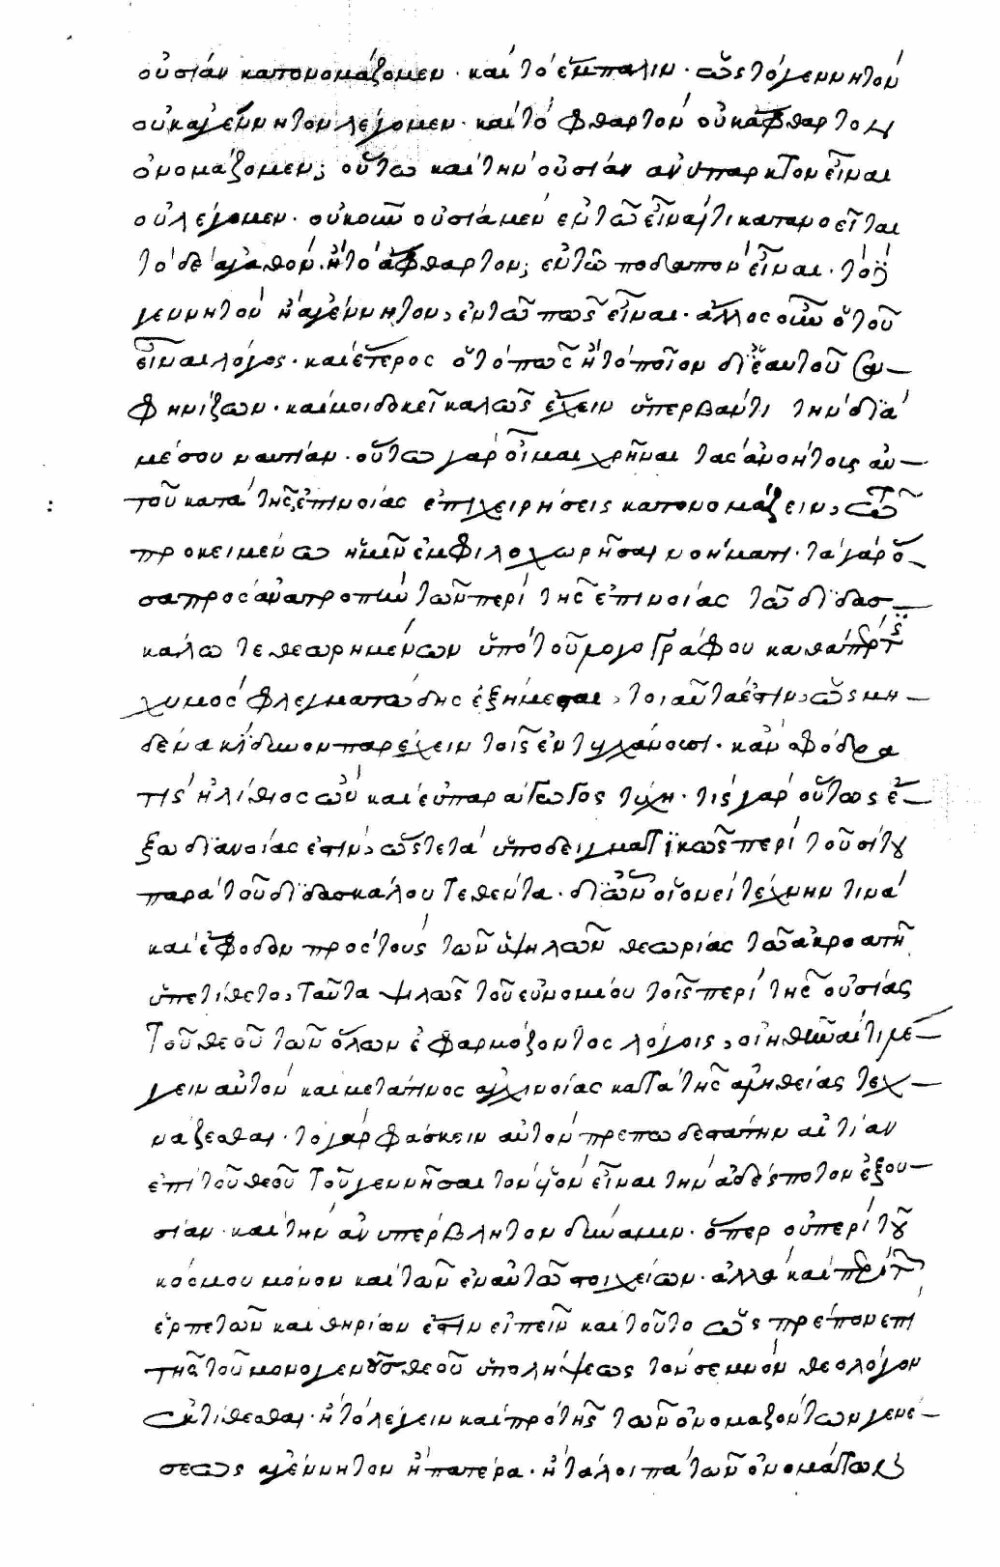 οὐσίαν κατονομάζομεν · καὶ τὸ ἔμπαλιν · ὡς τὸ γεννητὸν
οὐκ ἀγέννητον λέγομεν · καὶ τὸ φθαρτὸν οὐκ ἄφθαρτον
ὀνομάζομεν; οὕτω καὶ τὴν οὐσίαν ἀνύπαρκτον εἶναι
οὐ λέγομεν · οὐκοῦν οὐσία μὲν ἐν τῶ εἶναί τι κατανοεῖται
τὸ δὲ ἀγαθὸν ἢ τὸ ἄφθαρτον; ἐν τῶ ποδαπὸν εἶναι · τὸ δὲ
γεννητὸν ἢ ἀγέννητον, ἐν τῶ πῶς εἶναι · ἄλλος οὖν ὁ τοῦ
εἶναι λόγος · καὶ ἕτερος ὁ τὸ πῶς ἢ τὸ ποῖον δι ἑαυτοῦ σα-
φηνίζων · καί μοι δοκεῖ καλῶς ἔχειν ὑπερβάντι τὴν διὰ
μέσου ναυτίαν · οὕτω γὰρ οἶμαι χρῆναι τὰς ἀνοήτους αὐ-
τοῦ κατὰ τῆς ἐπινοίας ἐπιχειρήσεις κατονομάζειν, τῶ
προκειμένω ἡμῖν ἐμφιλοχωρῆσαι νοήματι · τὰ γὰρ ὅ-
σα πρὸς ἀνατροπὴν τῶν περὶ τῆς ἐπινοίας τῶ διδασ-
κάλω τεθεωρημένων ὑπὸ τοῦ λογογράφου καθάπερ τις
χυμὸς φλεγματώδης ἐξήμεσται, τοιαῦτά ἐστιν, ὡς μη-
δένα κίνδυνον παρέχειν τοῖς ἐντυγχάνουσι · κἂν σφόδρα
τις ἠλίθιος ὢν καὶ εὐπαράγωγος τύχη · τίς γὰρ οὕτως ἔ-
ξω διανοίας ἐστὶν, ὥστε τὰ ὑποδειγματικῶς περὶ τοῦ σίτου
παρὰ τοῦ διδασκάλου τεθέντα · δι ὧν οἱονεὶ τέχνην τινὰ
καὶ ἔφοδον πρὸς τοὺς τῶν ὑψηλῶν θεωρίας τῶ ἀκροατῆ
ὑπετίθετο, ταῦτα ψιλῶς τοῦ εὐνομίου τοῖς περὶ τῆς οὐσίας
τοῦ θεοῦ τῶν ὅλων ἐφαρμόζοντος λόγοις, οἰηθῆναί τι λέ-
γειν αὐτὸν καὶ μετά τινος ἀγχινοίας κατὰ τῆς ἀληθείας τεχ-
νάζεσθαι · τὸ γὰρ φάσκειν αὐτὸν πρεπωδεστάτην αἰτίαν
ἐπὶ τοῦ θεοῦ τοῦ γεννῆσαι τὸν υἱὸν εἶναι τὴν ἀδέσποτον ἐξου-
σίαν · καὶ τὴν ἀνυπέρβλητον δύναμιν · ὅπερ οὐ περὶ τοῦ
κόσμου μόνον καὶ τῶν ἐν αὐτῶ στοιχείων · ἀλλὰ καὶ περὶ τῶν
ἑρπετῶν καὶ θηρίων ἔστιν εἰπεῖν καὶ τοῦτο ὡς πρέπον ἐπὶ
τῆς τοῦ μονογενοῦς θεοῦ ὑπολήψεως τὸν σεμνὸν θεολόγον
ἐκτίθεσθαι · ἢ τὸ λέγειν καὶ πρὸ τῆς τῶν ὀνομαζόντων γενέ-
σεως ἀγέννητον ἢ πατέρα · ἢ τὰ λοιπὰ τῶν ὀνομάτων